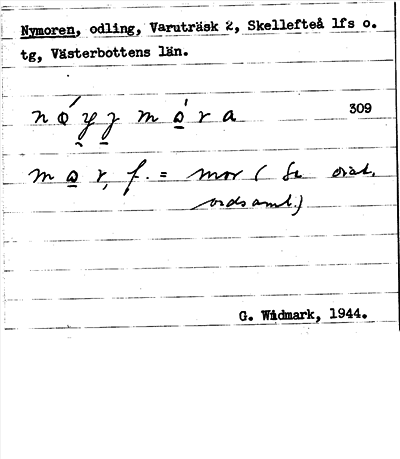 Nymoren, odling, Varuträsk 2, Skellefteå lfs o.
tg, Västerbottens län.
309
f. = mor (Se dial.
ordsaml.)
G. Widmark, 1944.